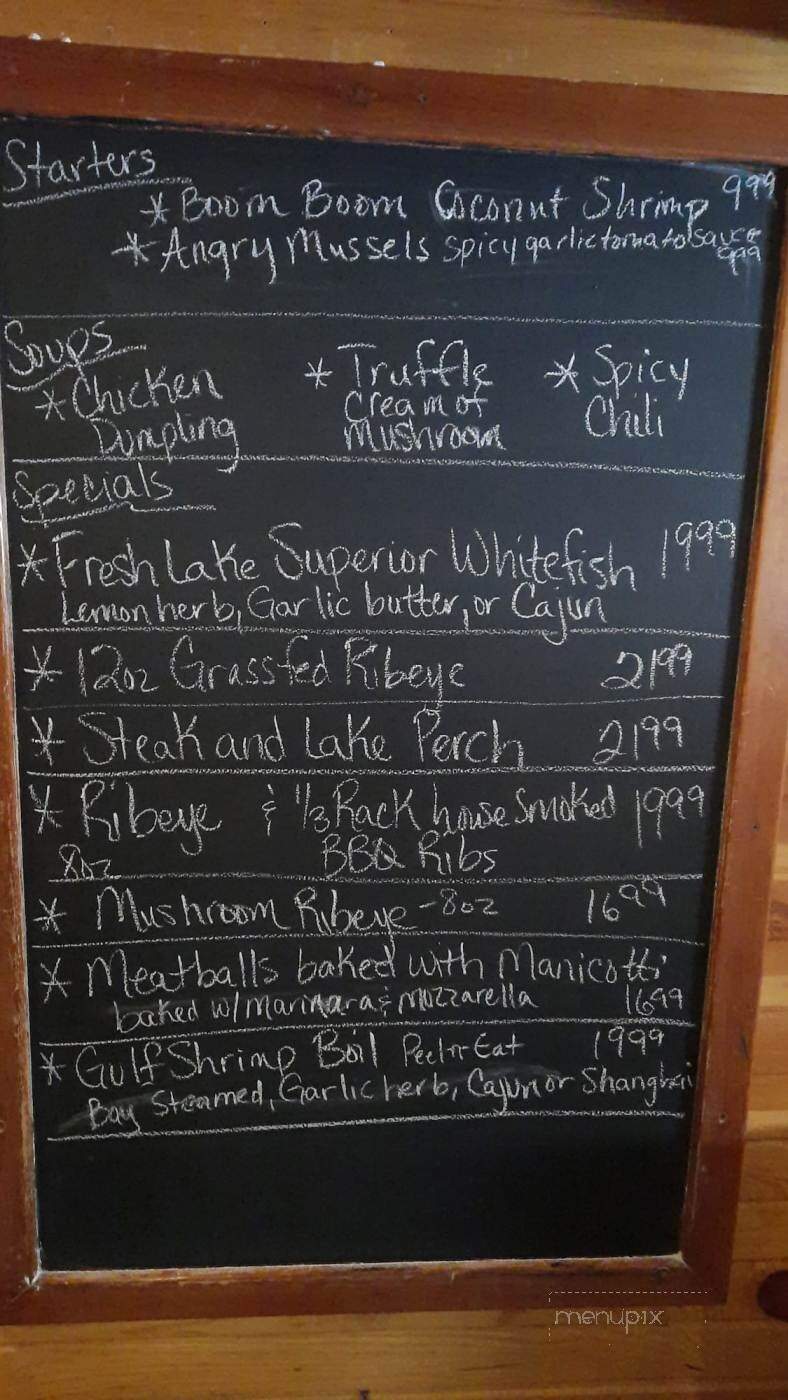 Starters
* Boom Boom Coconut Shrimp 999
* Angry Mussels spicy garlic tomato sauce
999
Soups
* Chicken Dumpling
* Truffle Cream of Mushroom
* Spicy Chili
Specials
* Fresh Lake Superior Whitefish 1999
Lemon herb, Garlic butter, or Cajun
* 12oz Grassfed Ribeye 2199
* Steak and Lake Perch 2199
* Ribeye & 1/3 Rack house smoked 1999
8oz BBQ Ribs
* Mushroom Ribeye - 8oz 1699
* Meatballs baked with Manicotti
baked w/ marinara & mozzarella 1699
* Gulf Shrimp Boil Peel n Eat 1999
Bay Steamed, Garlic herb, Cajun or Shanghai
menupix